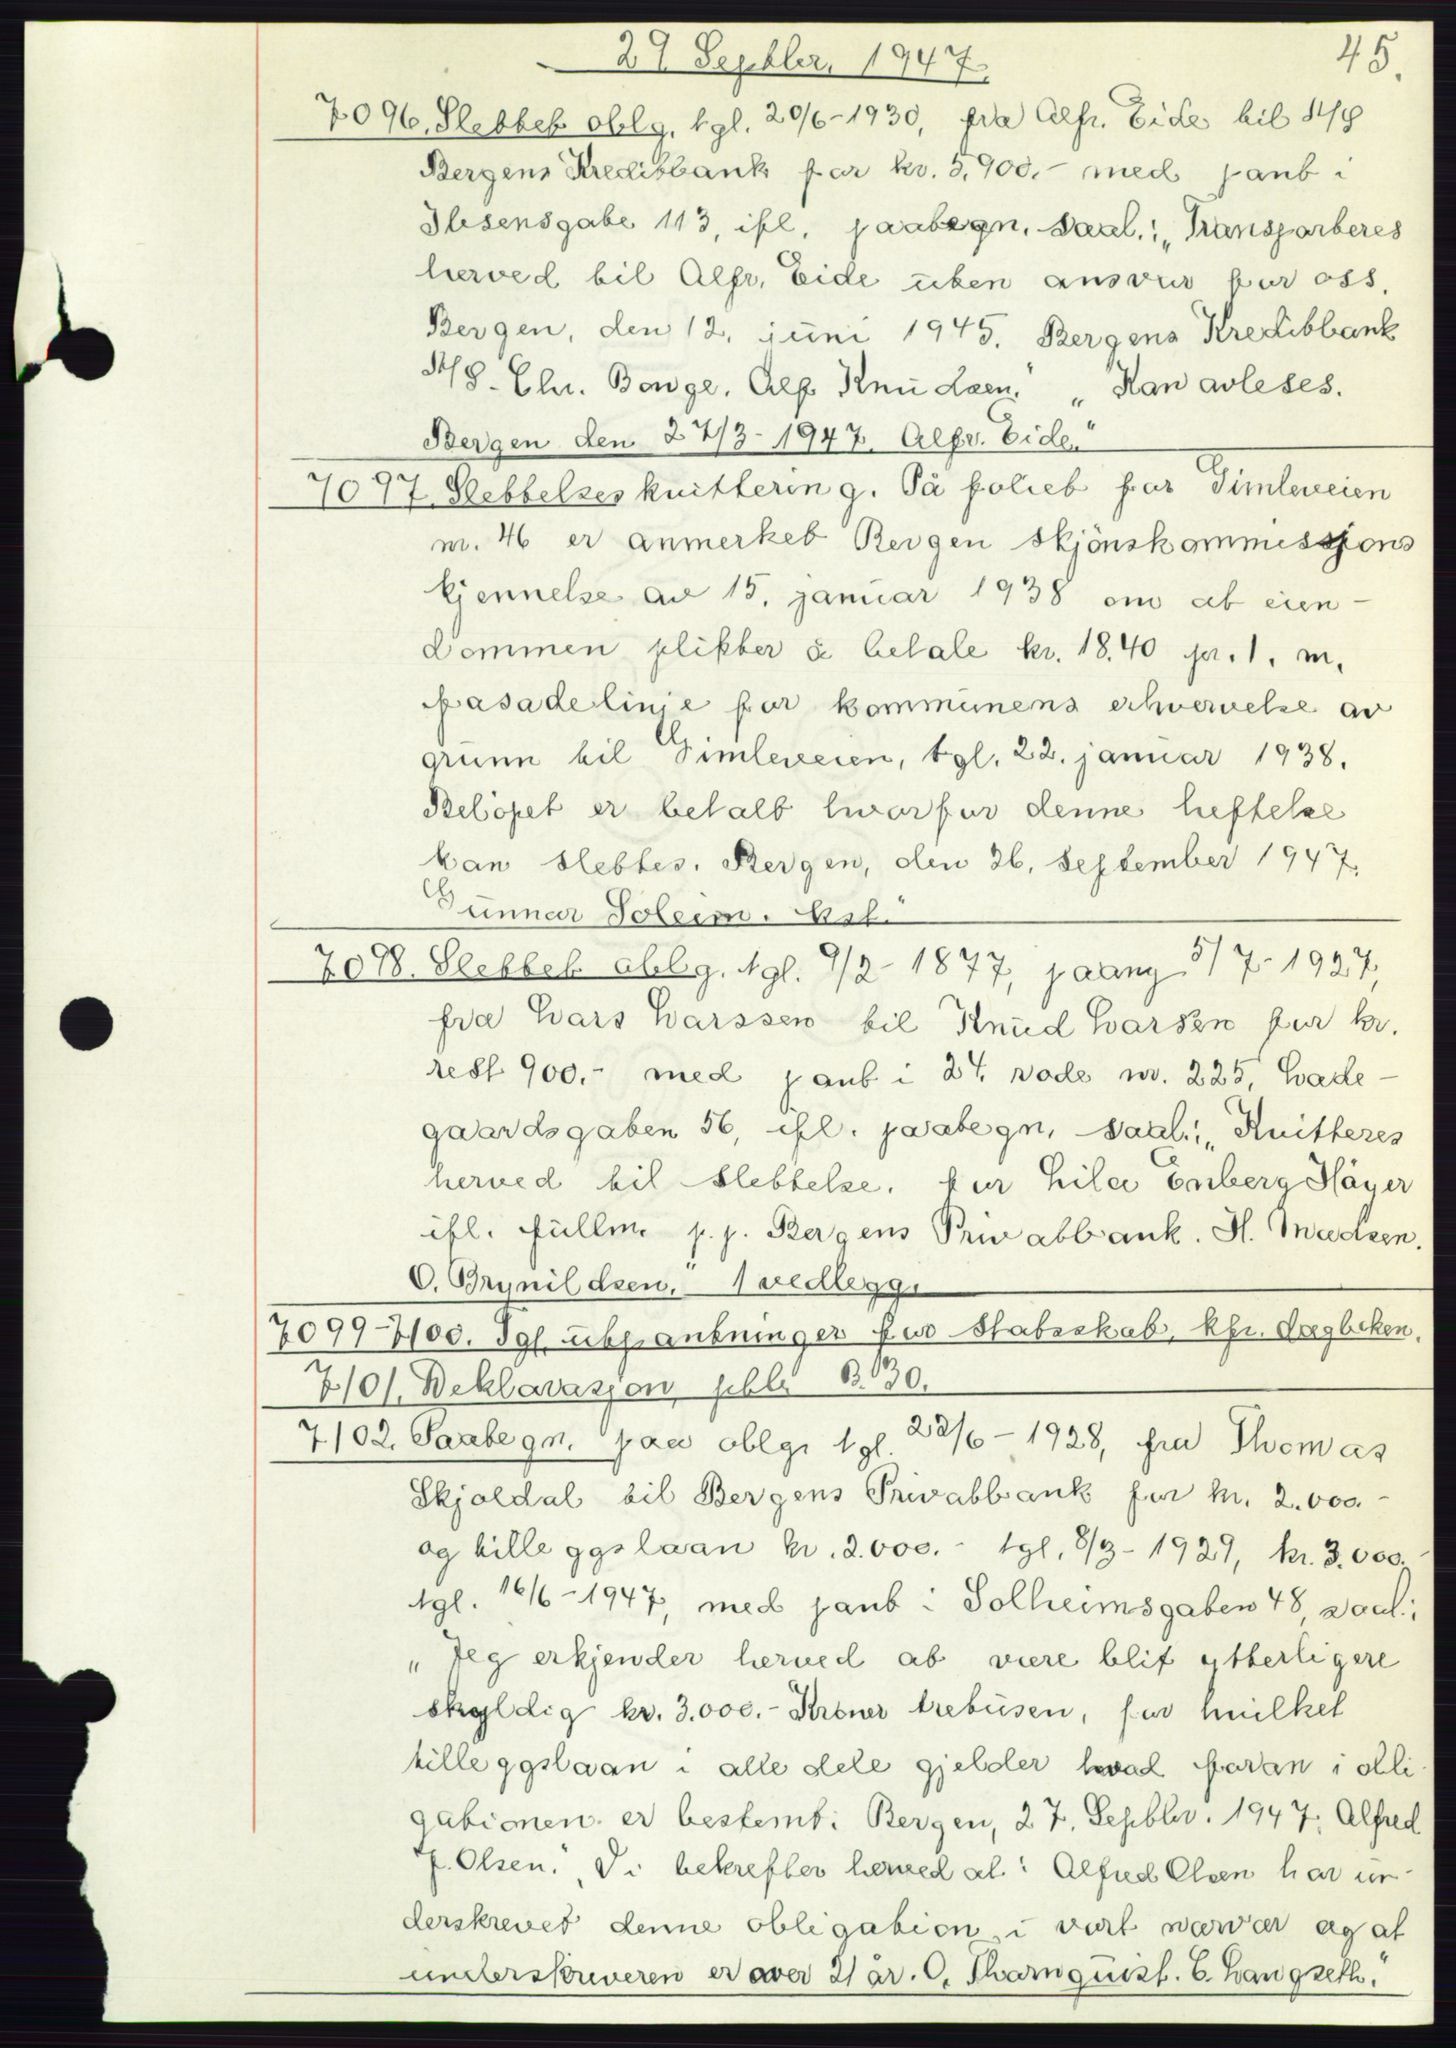 29. Septbr. 1947.
45.
7096. Slettet oblg. tgl. 20/6-1930, fra Alfr. Eide til A/S
Bergens Kreditbank for kr. 5.900.- med pant i
Ibsensgate 113, ifl. paategn. saal.: „Transporteres
herved til Alfr. Eide uten ansvar for oss.
Bergen, den 12. juni 1945. Bergens Kreditbank
A/S. Chr. Bonge. Alf Knudsen." „Kan avleses.
Bergen den 27/3-1947. Alfr. Eide."
7097. Slettelseskvittering. På foliet for Gimleveien
nr. 46 er anmerket Bergen skjönskommissjons
kjennelse av 15. januar 1938 om at eien-
dommen plikter å betale kr. 18.40 pr. l. m.
fasadelinje for kommunens erhvervelse av
grunn til Gimleveien, tgl. 22. januar 1938.
Belöpet er betalt hvorfor denne heftelse
kan slettes. Bergen, den 26. september 1947.
Gunnar Soleim.
7098. Slettet oblg. tgl. 9/2-1877, paany 5/7-1927,
fra Lars Larssen til Knud Larsen for kr.
rest 900.- med pant i 24. rode nr. 225, Lade-
gaardsgaten 56, ifl. paategn. saal.: „Kvitteres
herved til slettelse. for Lila Enberg Häger
ifl. fullm. p.p. Bergens Privatbank. H. Madsen.
O. Brynildsen." 1 vedlegg.
7099-7100. Tgl. utpantninger for Statsskat, kfr. dagboken.
7101. Deklarasjon, pbl. B. 30.
7102. Paategn. paa oblg. tgl. 22/6-1928, fra Thomas
Skjoldal til Bergens Privatbank for kr. 2.000.-
og tilleggslaan kr. 2.000.- tgl. 8/3-1929, kr. 3.000.-
tgl. 16/6-1947, med pant i Solheimsgaten 48, saal.:
„Jeg erkjender herved at være blit ytterligere
skyldig kr. 3.000.- Kroner tretusen, for hvilket
tilleggslaan i alle dele gjelder hvad foran i obli-
gationen er bestemt. Bergen, 27. Septbr. 1947. Alfred
J. Olsen." „Vi bekrefter herved at: Alfred Olsen har un-
derskrevet denne obligation i vort nærvær og at
underskriveren er over 21 år. O. Thornquist. E. Langseth."